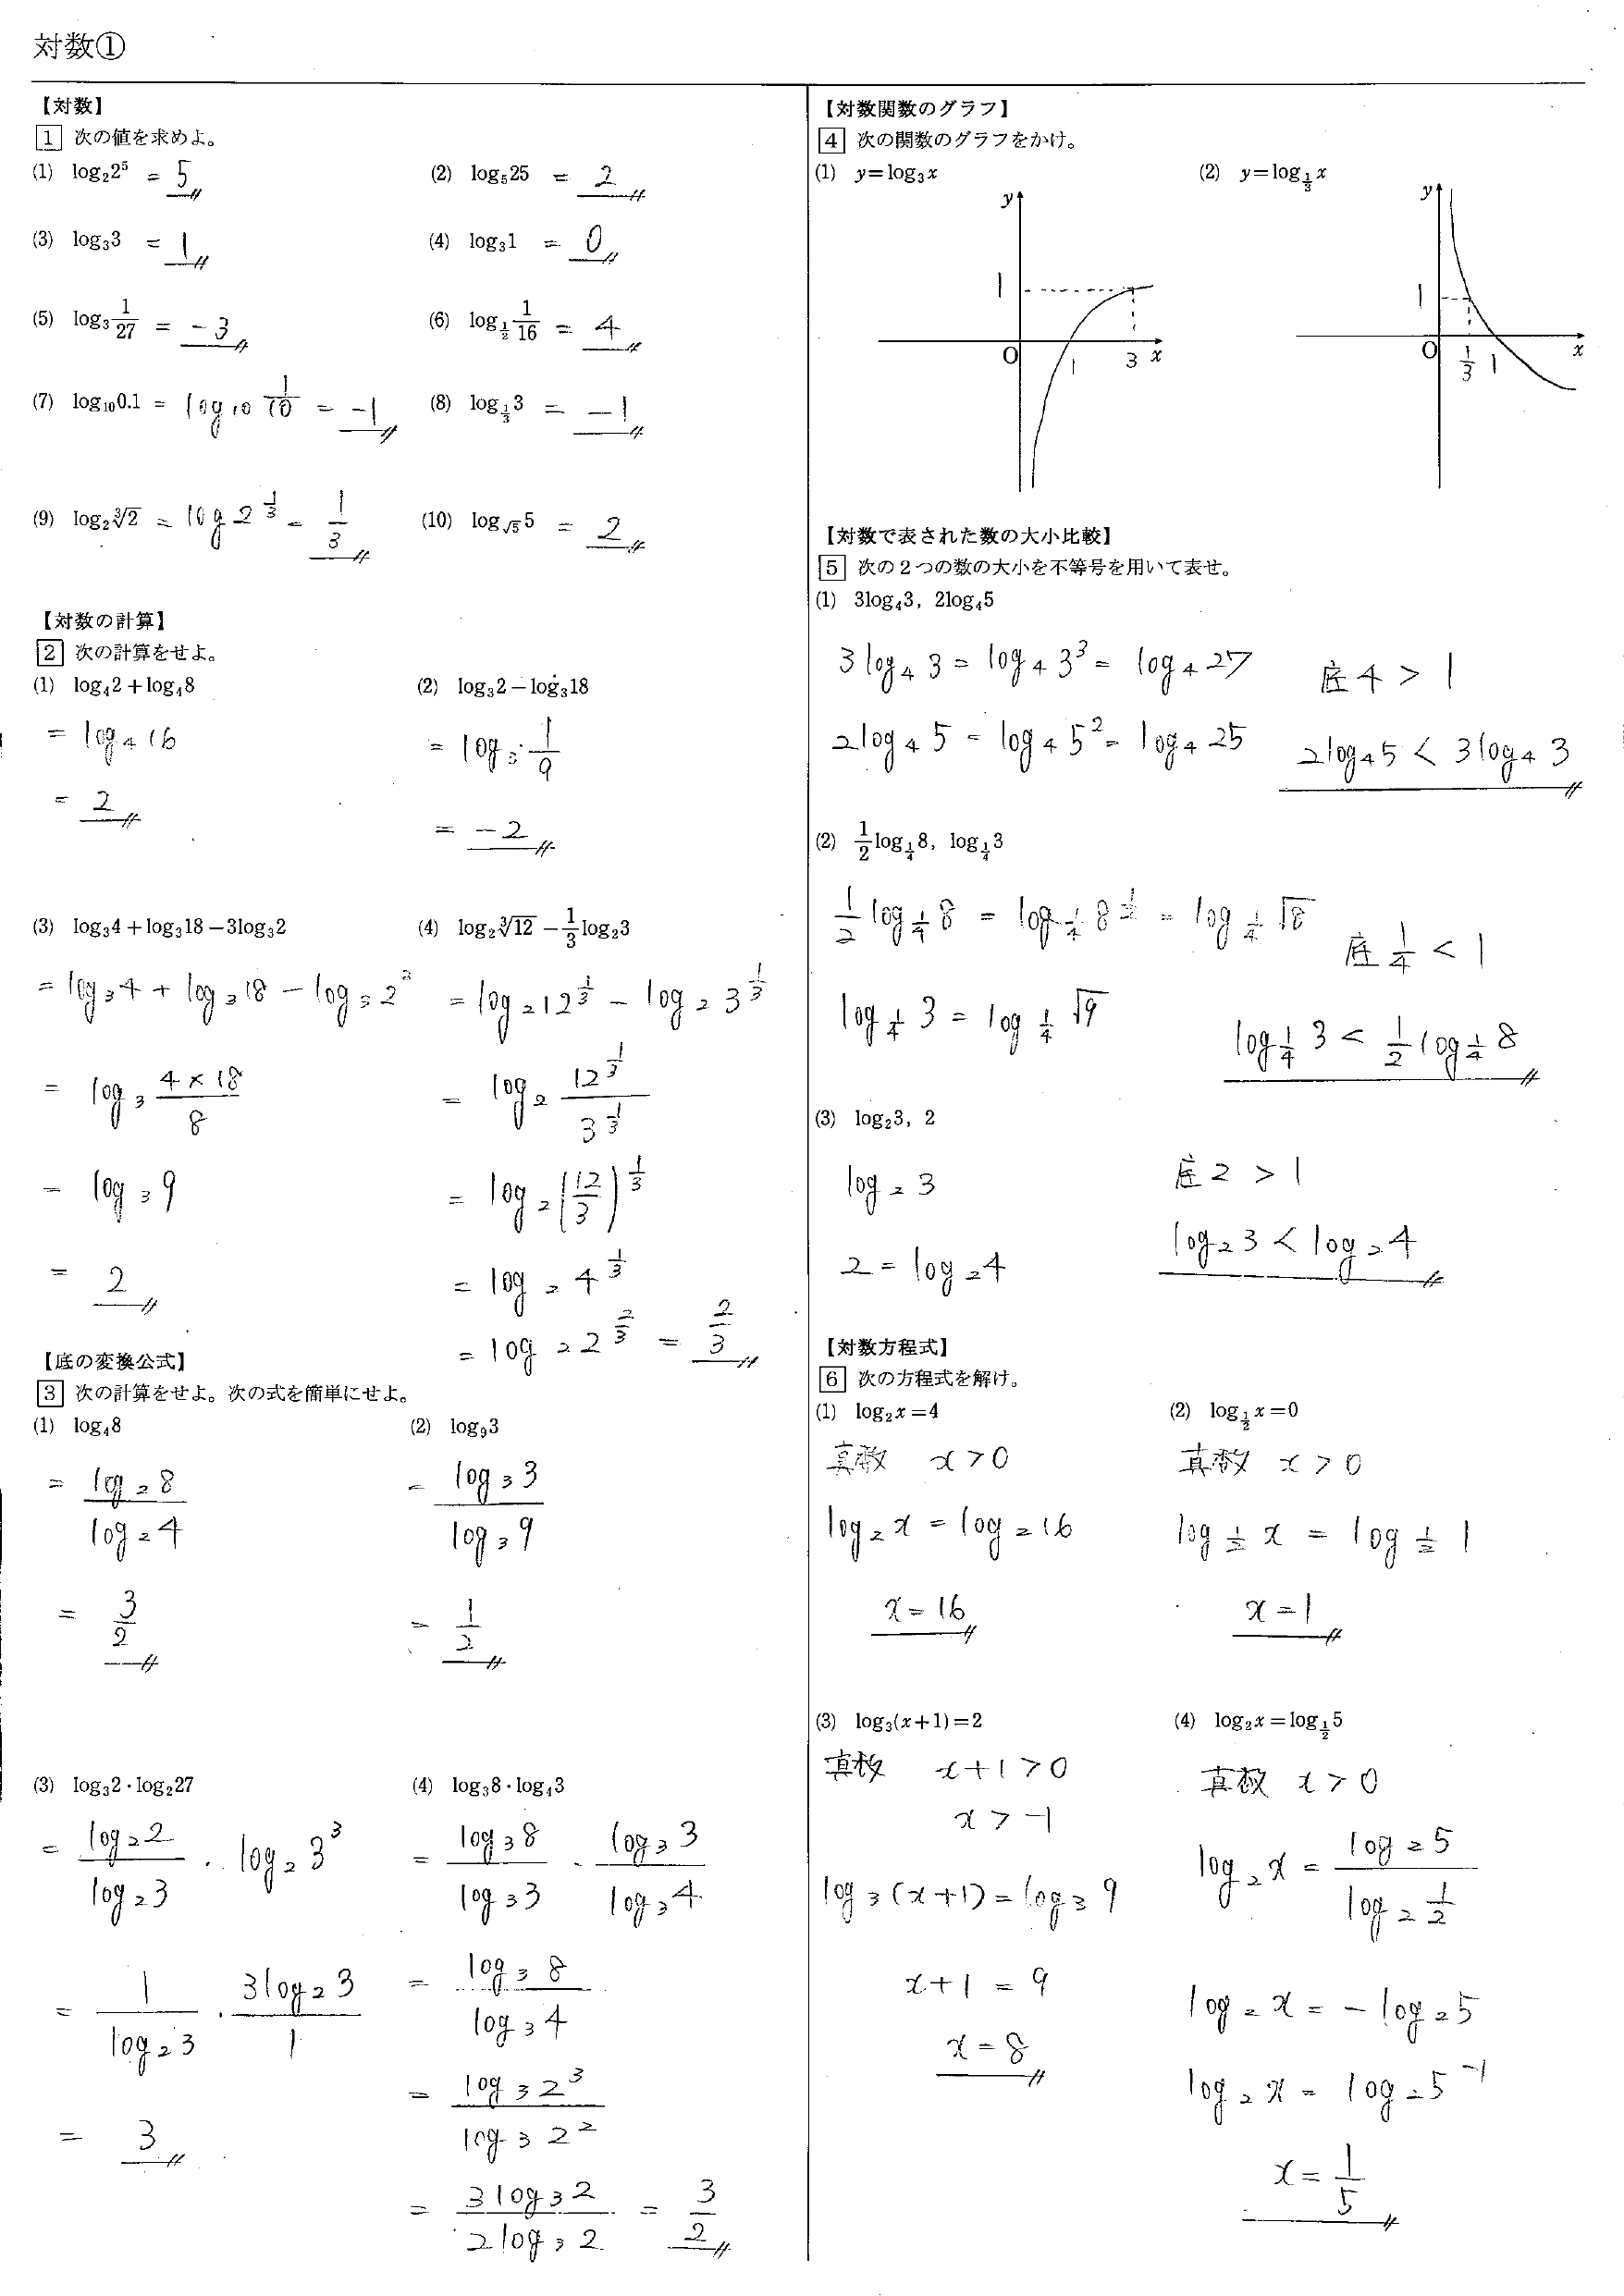 対数①
【対数】
1 次の値を求めよ。
(1) log₂2⁵ = 5
(2) log₅25 = 2
(3) log₃3 = 1
(4) log₃1 = 0
(5) log₃ 1/27 = -3
(6) log_{1/2} 1/16 = 4
(7) log₁₀0.1 = log₁₀ 1/10 = -1
(8) log_{1/3} 3 = -1
(9) log₂∛2 = log 2^{1/3} = 1/3
(10) log_{√5} 5 = 2
【対数の計算】
2 次の計算をせよ。
(1) log₄2+log₄8
= log₄16
= 2
(2) log₃2-log₃18
= log₃ 1/9
= -2
(3) log₃4+log₃18-3log₃2
= log₃4 + log₃18 - log₃2³
= log₃ (4×18)/8
= log₃9
= 2
(4) log₂∛12 - 1/3 log₂3
= log₂12^{1/3} - log₂3^{1/3}
= log₂ 12^{1/3}/3^{1/3}
= log₂(12/3)^{1/3}
= log₂4^{1/3}
= log₂2^{2/3} = 2/3
【底の変換公式】
3 次の計算をせよ。次の式を簡単にせよ。
(1) log₄8
= log₂8/log₂4
= 3/2
(2) log₉3
= log₃3/log₃9
= 1/2
(3) log₃2・log₂27
= log₂2/log₂3 ・ log₂3³
= 1/log₂3 ・ 3log₂3/1
= 3
(4) log₃8・log₄3
= log₃8/log₃3 ・ log₃3/log₃4
= log₃8/log₃4
= log₃2³/log₃2²
= 3log₃2/2log₃2 = 3/2
【対数関数のグラフ】
4 次の関数のグラフをかけ。
(1) y=log₃x
y
1
O 1 3 x
(2) y=log_{1/3} x
y
1
O 1/3 1 x
【対数で表された数の大小比較】
5 次の2つの数の大小を不等号を用いて表せ。
(1) 3log₄3, 2log₄5
3log₄3 = log₄3³ = log₄27 底4 > 1
2log₄5 = log₄5² = log₄25 2log₄5 < 3log₄3
(2) 1/2 log_{1/4} 8, log_{1/4} 3
1/2 log_{1/4} 8 = log_{1/4} 8^{1/2} = log_{1/4} √8
底 1/4 < 1
log_{1/4} 3 = log_{1/4} √9
log_{1/4} 3 < 1/2 log_{1/4} 8
(3) log₂3, 2
log₂3 底2 > 1
2 = log₂4 log₂3 < log₂4
【対数方程式】
6 次の方程式を解け。
(1) log₂x=4
真数 x>0
log₂x = log₂16
x=16
(2) log_{1/2} x=0
真数 x>0
log_{1/2} x = log_{1/2} 1
x=1
(3) log₃(x+1)=2
真数 x+1>0
x>-1
log₃(x+1) = log₃9
x+1 = 9
x=8
(4) log₂x=log_{1/2} 5
真数 x>0
log₂x = log₂5/log₂ 1/2
log₂x = -log₂5
log₂x = log₂5⁻¹
x = 1/5